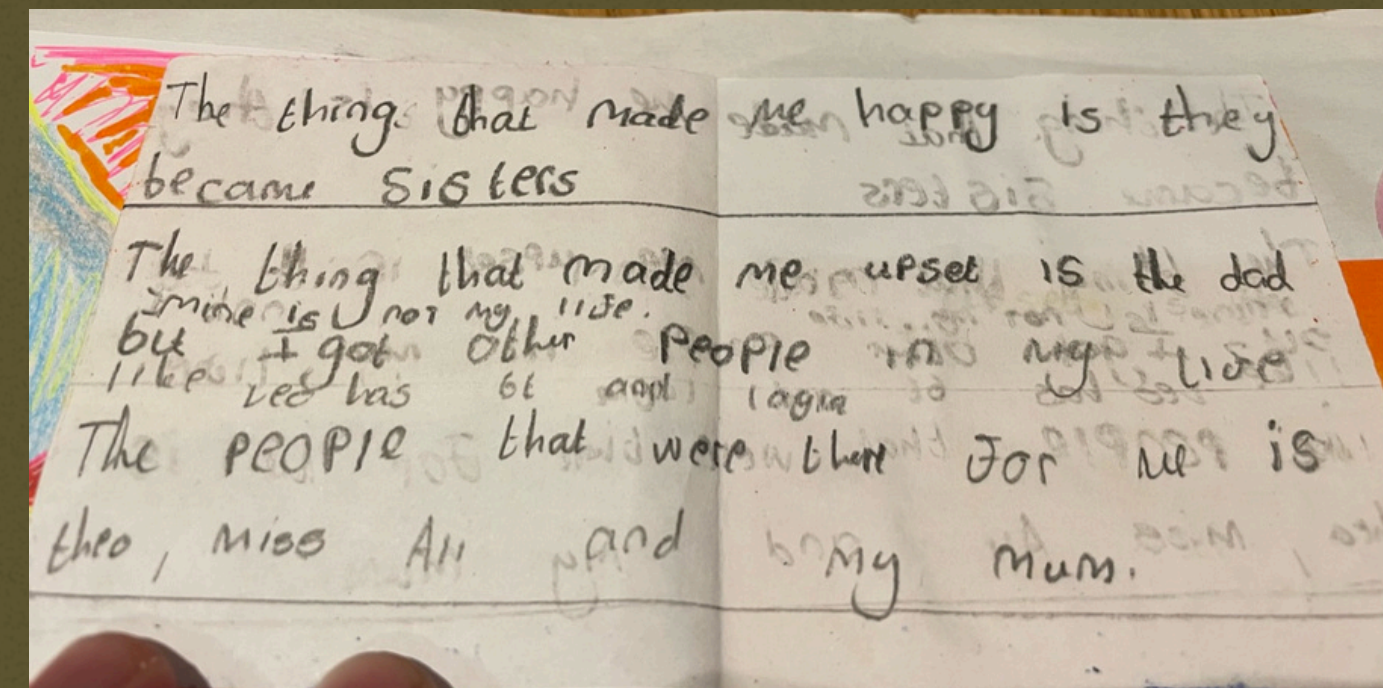 The thing that made me happy is they
became sisters
The thing that made me upset is the dad
mine is not my life.
but I got other people in my life
like Leo has
The people that were there for me is
theo, miss Ali and my mum.